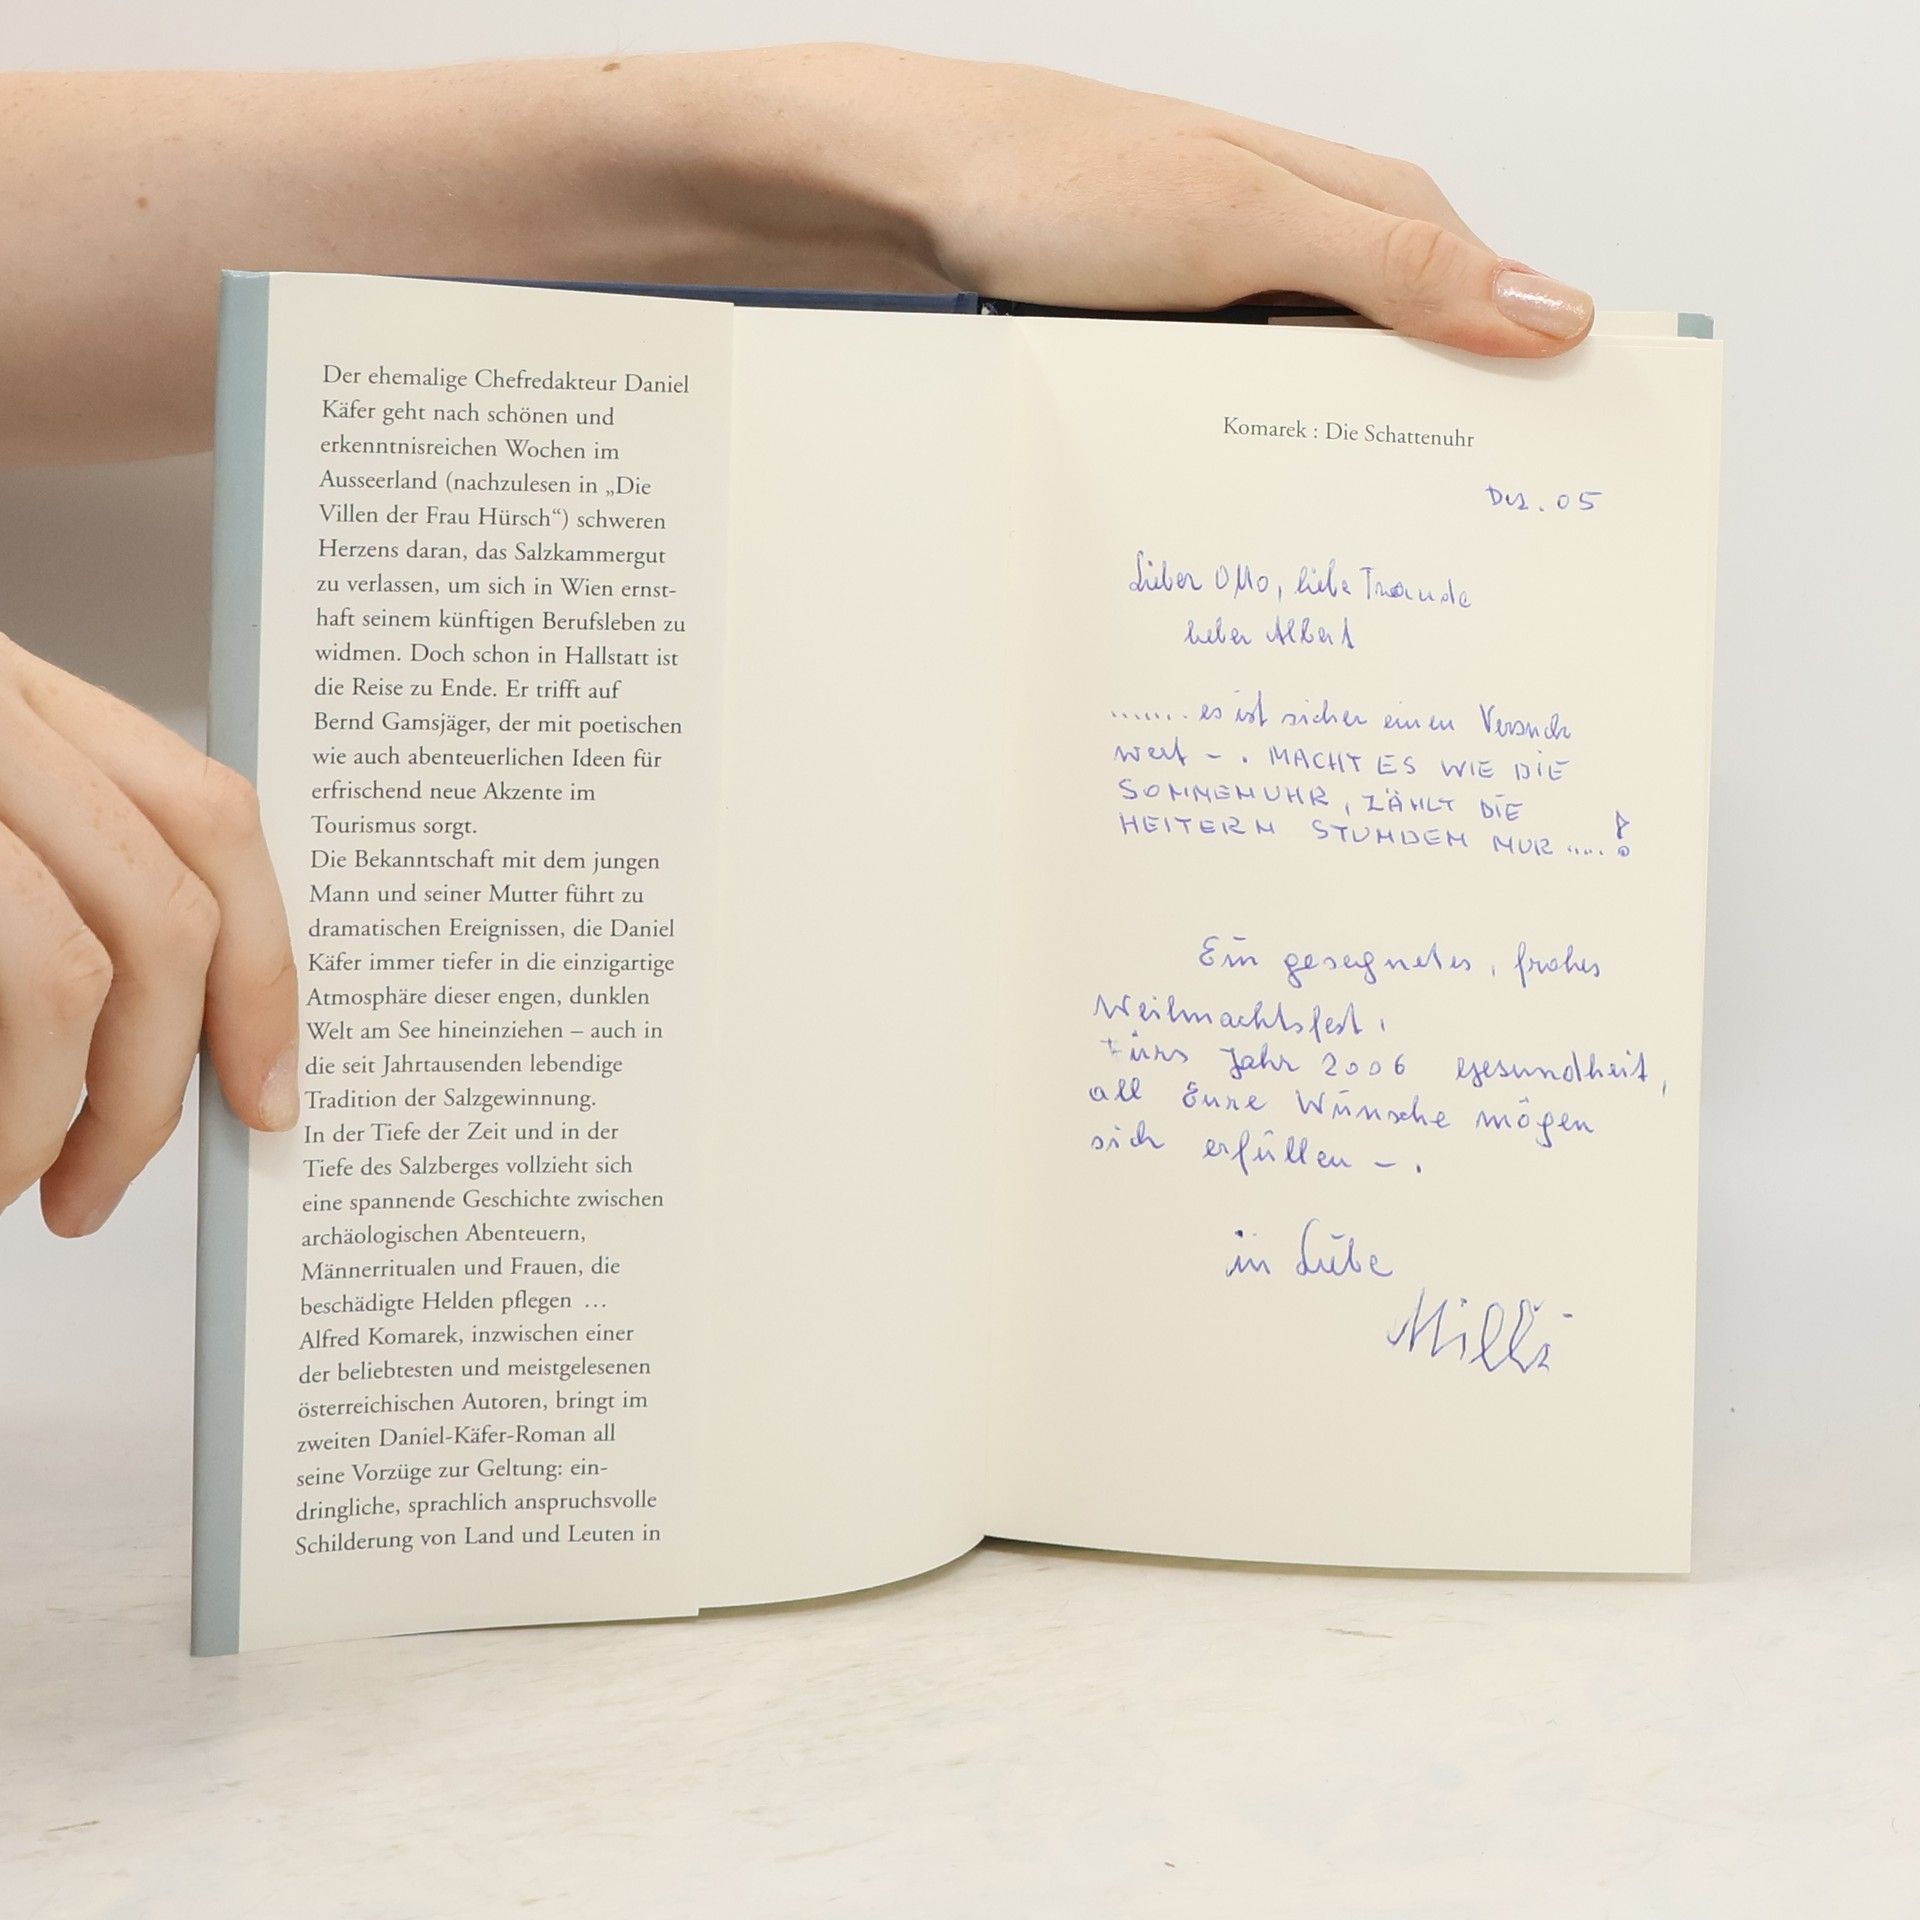 Der ehemalige Chefredakteur Daniel
Käfer geht nach schönen und
erkenntnisreichen Wochen im
Ausseerland (nachzulesen in „Die
Villen der Frau Hürsch“) schweren
Herzens daran, das Salzkammergut
zu verlassen, um sich in Wien ernst-
haft seinem künftigen Berufsleben zu
widmen. Doch schon in Hallstatt ist
die Reise zu Ende. Er trifft auf
Bernd Gamsjäger, der mit poetischen
wie auch abenteuerlichen Ideen für
erfrischend neue Akzente im
Tourismus sorgt.
Die Bekanntschaft mit dem jungen
Mann und seiner Mutter führt zu
dramatischen Ereignissen, die Daniel
Käfer immer tiefer in die einzigartige
Atmosphäre dieser engen, dunklen
Welt am See hineinziehen – auch in
die seit Jahrtausenden lebendige
Tradition der Salzgewinnung.
In der Tiefe der Zeit und in der
Tiefe des Salzberges vollzieht sich
eine spannende Geschichte zwischen
archäologischen Abenteuern,
Männerritualen und Frauen, die
beschädigte Helden pflegen …
Alfred Komarek, inzwischen einer
der beliebtesten und meistgelesenen
österreichischen Autoren, bringt im
zweiten Daniel-Käfer-Roman all
seine Vorzüge zur Geltung: ein-
dringliche, sprachlich anspruchsvolle
Schilderung von Land und Leuten in
Komarek : Die Schattenuhr
Dez. 05
Lieber Otto, liebe Traude
lieber Albert
....... es ist sicher einen Versuch
wert – . MACHT ES WIE DIE
SONNENUHR, ZÄHLT DIE
HEITERN STUNDEN NUR .....!
Ein gesegnetes, frohes
Weihnachtsfest,
fürs Jahr 2006 Gesundheit,
all Eure Wünsche mögen
sich erfüllen – .
in Liebe
Milli